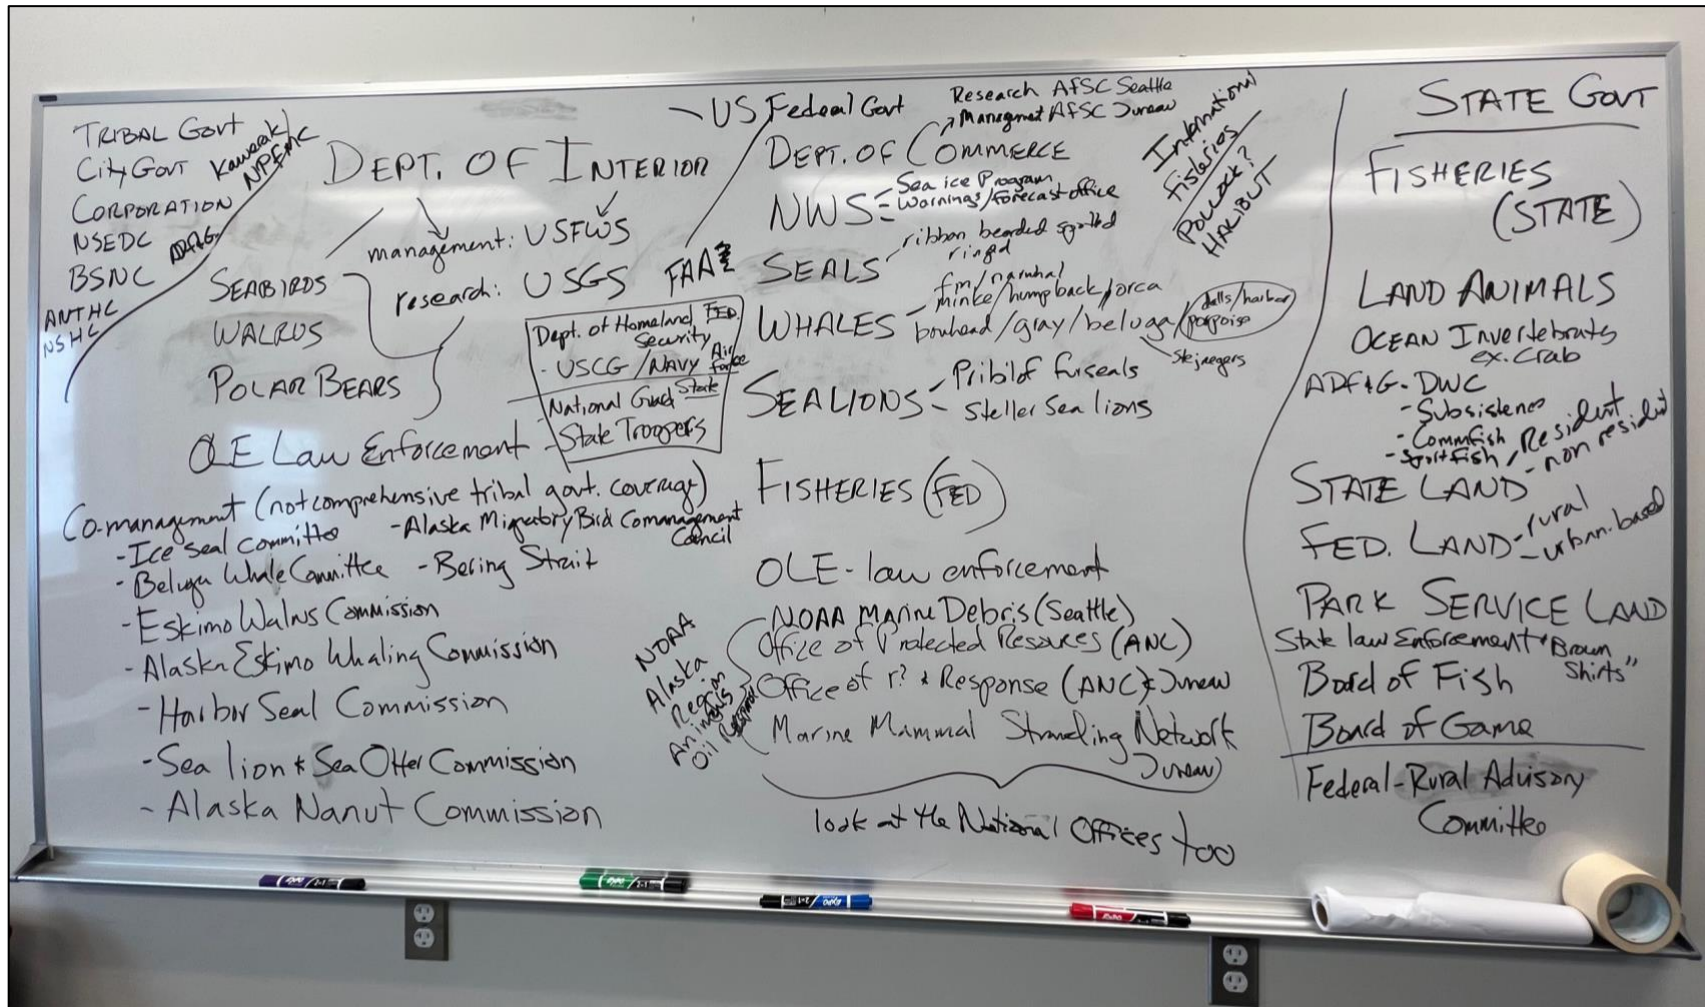 TRIBAL GOVT
CITY GOVT Kawerak
NPFMC
CORPORATION
NSEDC ADF&G
BSNC
ANTHC
NSHC
US Federal Govt
DEPT. OF INTERIOR
management: USFWS
research: USGS
FAA
SEABIRDS
WALRUS
POLAR BEARS
Dept. of Homeland FED.
Security
- USCG / NAVY Air
Force
National Guard State
State Troopers
OLE Law Enforcement
Co-management (not comprehensive tribal govt. coverage)
- Ice Seal Committee
- Alaska Migratory Bird Comanagement
Council
- Beluga Whale Committee
- Bering Strait
- Eskimo Walrus Commission
- Alaska Eskimo Whaling Commission
- Harbor Seal Commission
- Sea lion & Sea Otter Commission
- Alaska Nanut Commission
Research AFSC Seattle
Managemet AFSC Juneau
DEPT. OF COMMERCE
NWS - Sea ice Program
- Warnings/forecast office
SEALS ribbon bearded spotted
ringed
fin/narwhal
minke/humpback/orca
WHALES bowhead/gray/beluga/porpoise
dalls/harbor
stejnegers
SEALIONS - Pribilof furseals
- Steller Sea lions
International
Fisheries
POLLOCK?
HALIBUT
FISHERIES (FED)
OLE - law enforcement
NOAA Marine Debris (Seattle)
Office of Protected Resources (ANC)
Office of r? & Response (ANC) & Juneau
Marine Mammal Stranding Network
Juneau
NOAA
Alaska
Region
Animals
Oil
look at the National Offices too
STATE GOVT
FISHERIES
(STATE)
LAND ANIMALS
OCEAN Invertebrates
ex. Crab
ADF&G - DWC
- Subsistence
- Commfish
- Sportfish / Resident
- non resident
STATE LAND
FED. LAND - rural
- urban-based
PARK SERVICE LAND
State law Enforcement "Brown
Shirts"
Board of Fish
Board of Game
Federal-Rural Advisory
Committee